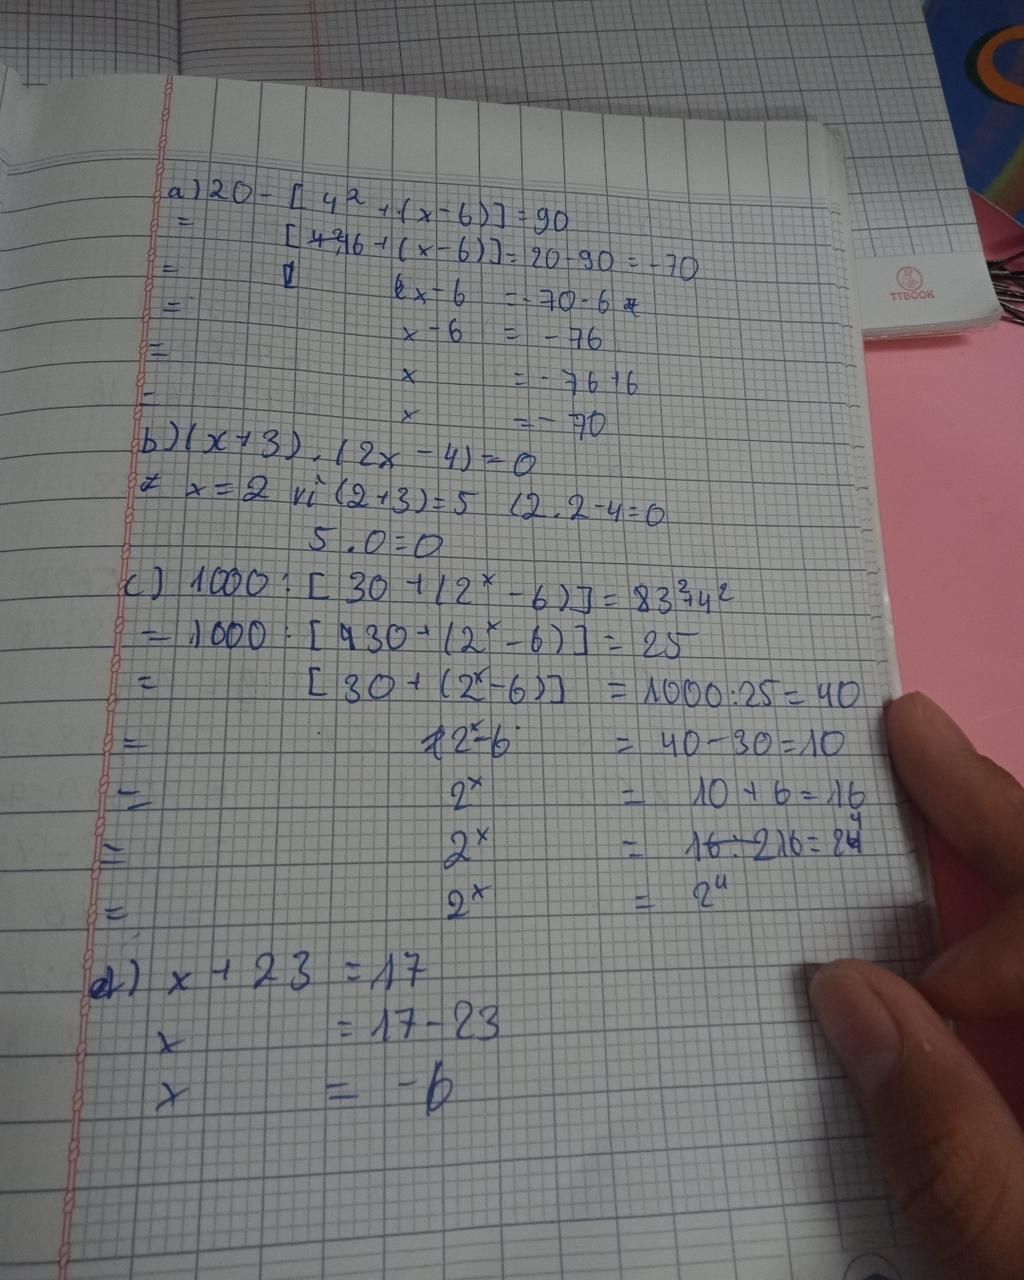 a) 20 - [ 4² + (x - 6)] = 90
= [ 16 + (x - 6)] = 20 - 90 = -70
= x - 6 = -70 - 6
= x - 6 = - 76
= x = - 76 + 6
= x = - 70
b) (x + 3) . (2x - 4) = 0
x = 2 vì (2 + 3) = 5 (2 . 2 - 4 = 0
5 . 0 = 0
c) 1000 : [ 30 + (2ˣ - 6)] = 3² + 4²
= 1000 : [ 30 + (2ˣ - 6)] = 25
= [ 30 + (2ˣ - 6)] = 1000 : 25 = 40
= 2ˣ - 6 = 40 - 30 = 10
= 2ˣ = 10 + 6 = 16
= 2ˣ = 16 = 2⁴
= 2ˣ = 2⁴
d) x + 23 = 17
x = 17 - 23
x = - 6
TTBOOK